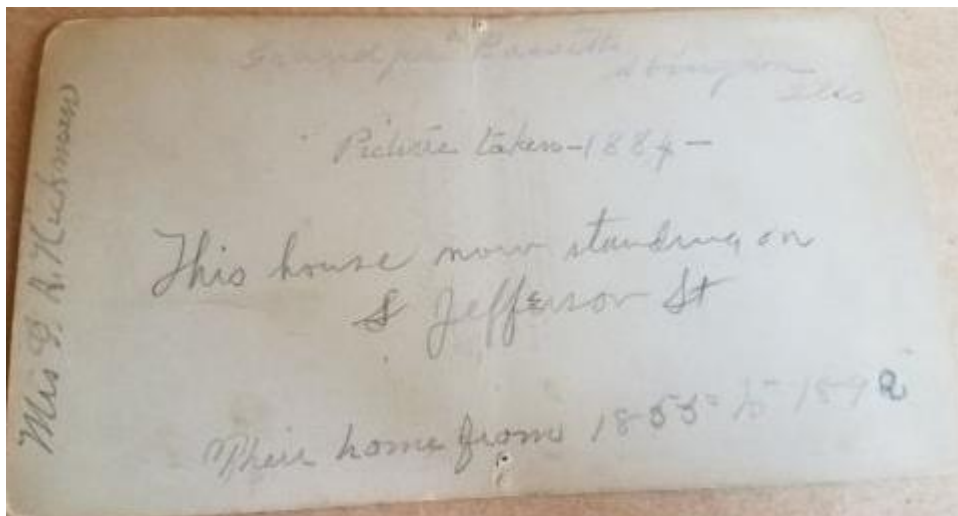 Grandpa
Abingdon
Ills
Picture taken - 1884 -
This house now standing on
S Jefferson St
Their home from 1855 to 1892
Mrs